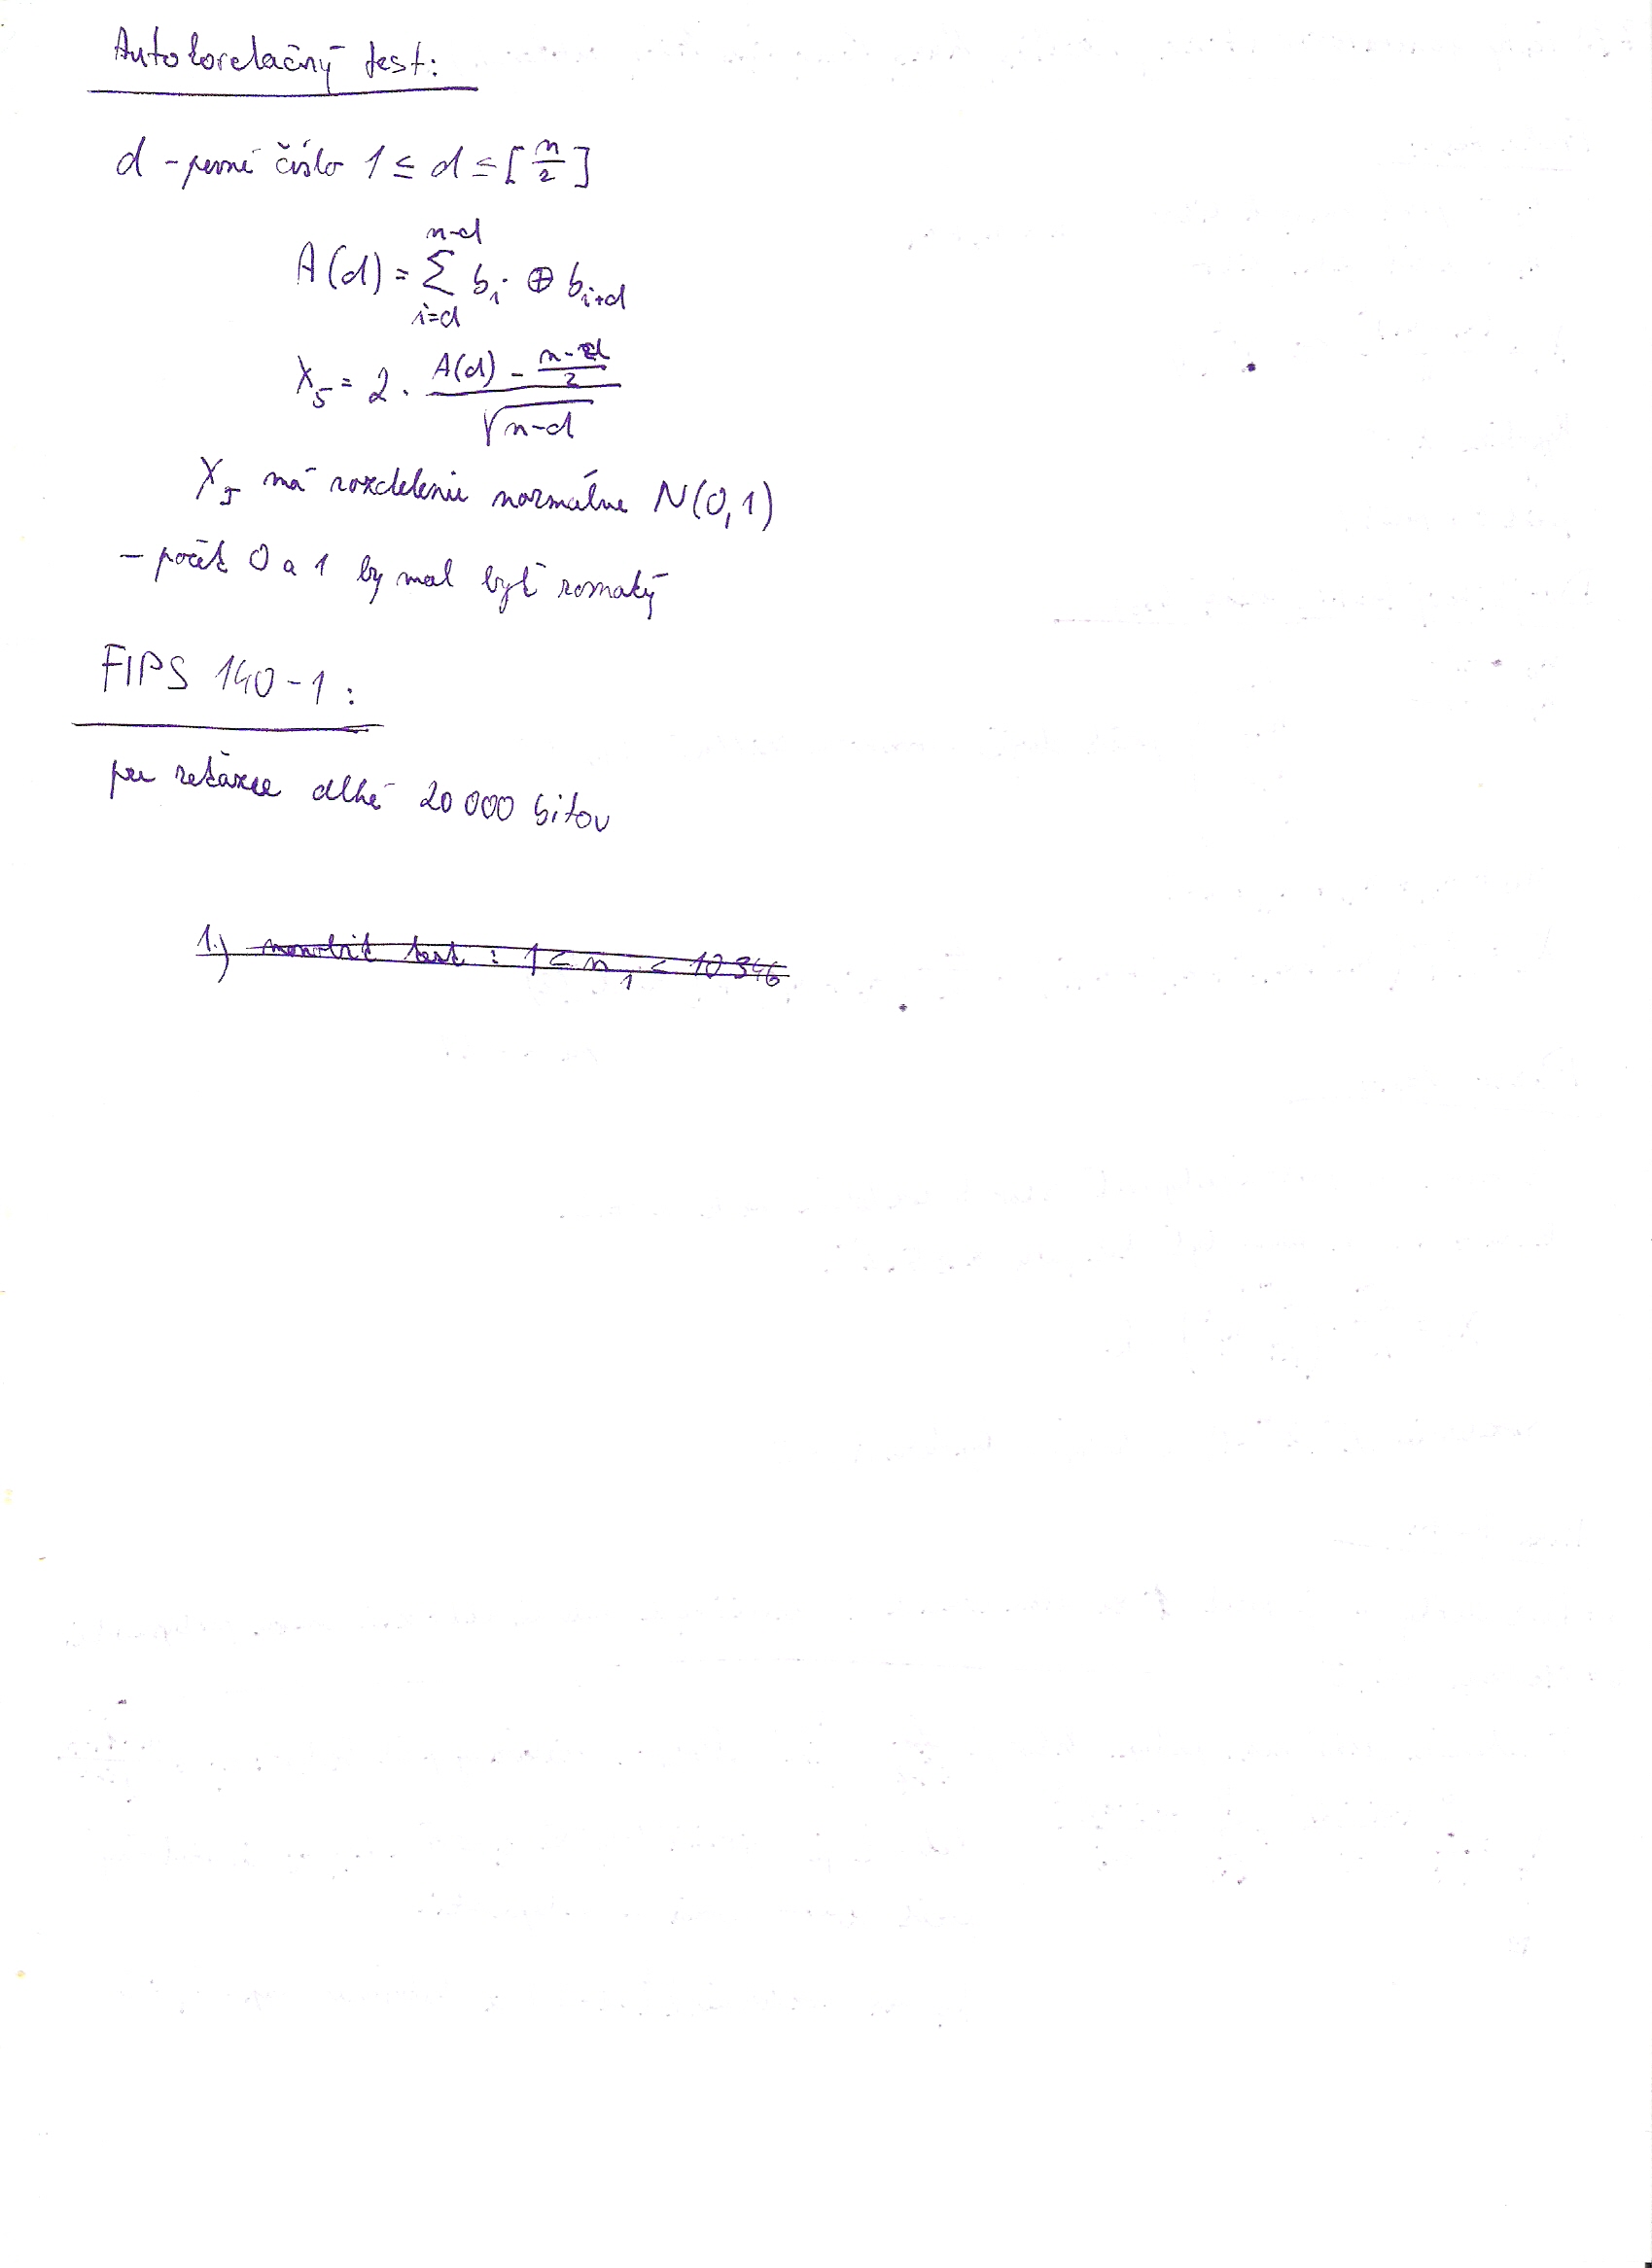 Autokorelačný test:
d - pevné číslo 1 ≤ d ≤ [n/2]
A(d) = Σ_{i=d}^{n-d} b_i ⊕ b_{i+d}
X_5 = 2 · (A(d) - (n-d)/2) / √(n-d)
X_5 má rozdelenie normálne N(0,1)
- počet 0 a 1 by mal byť rovnaký
FIPS 140-1:
pre reťazce dlhé 20 000 bitov
1.) monobit test : 1 < n_1 < 10 346